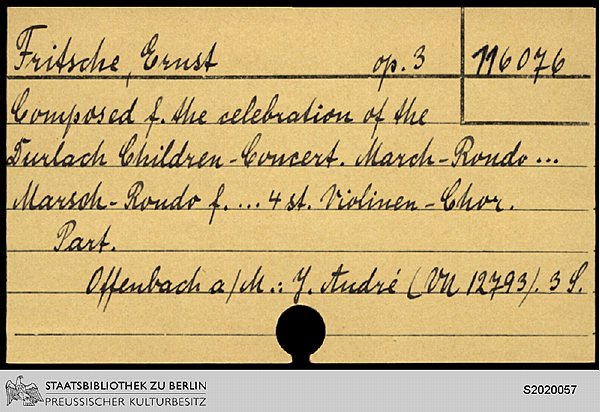 Fritsche, Ernst op. 3 116076
Composed f. the celebration of the
Durlach Children-Concert. March-Rondo ...
Marsch-Rondo f. ... 4 st. Violinen-Chor.
Part.
Offenbach a/M.: J. André (VN 12793). 3 S.
STAATSBIBLIOTHEK ZU BERLIN
PREUSSISCHER KULTURBESITZ
S2020057